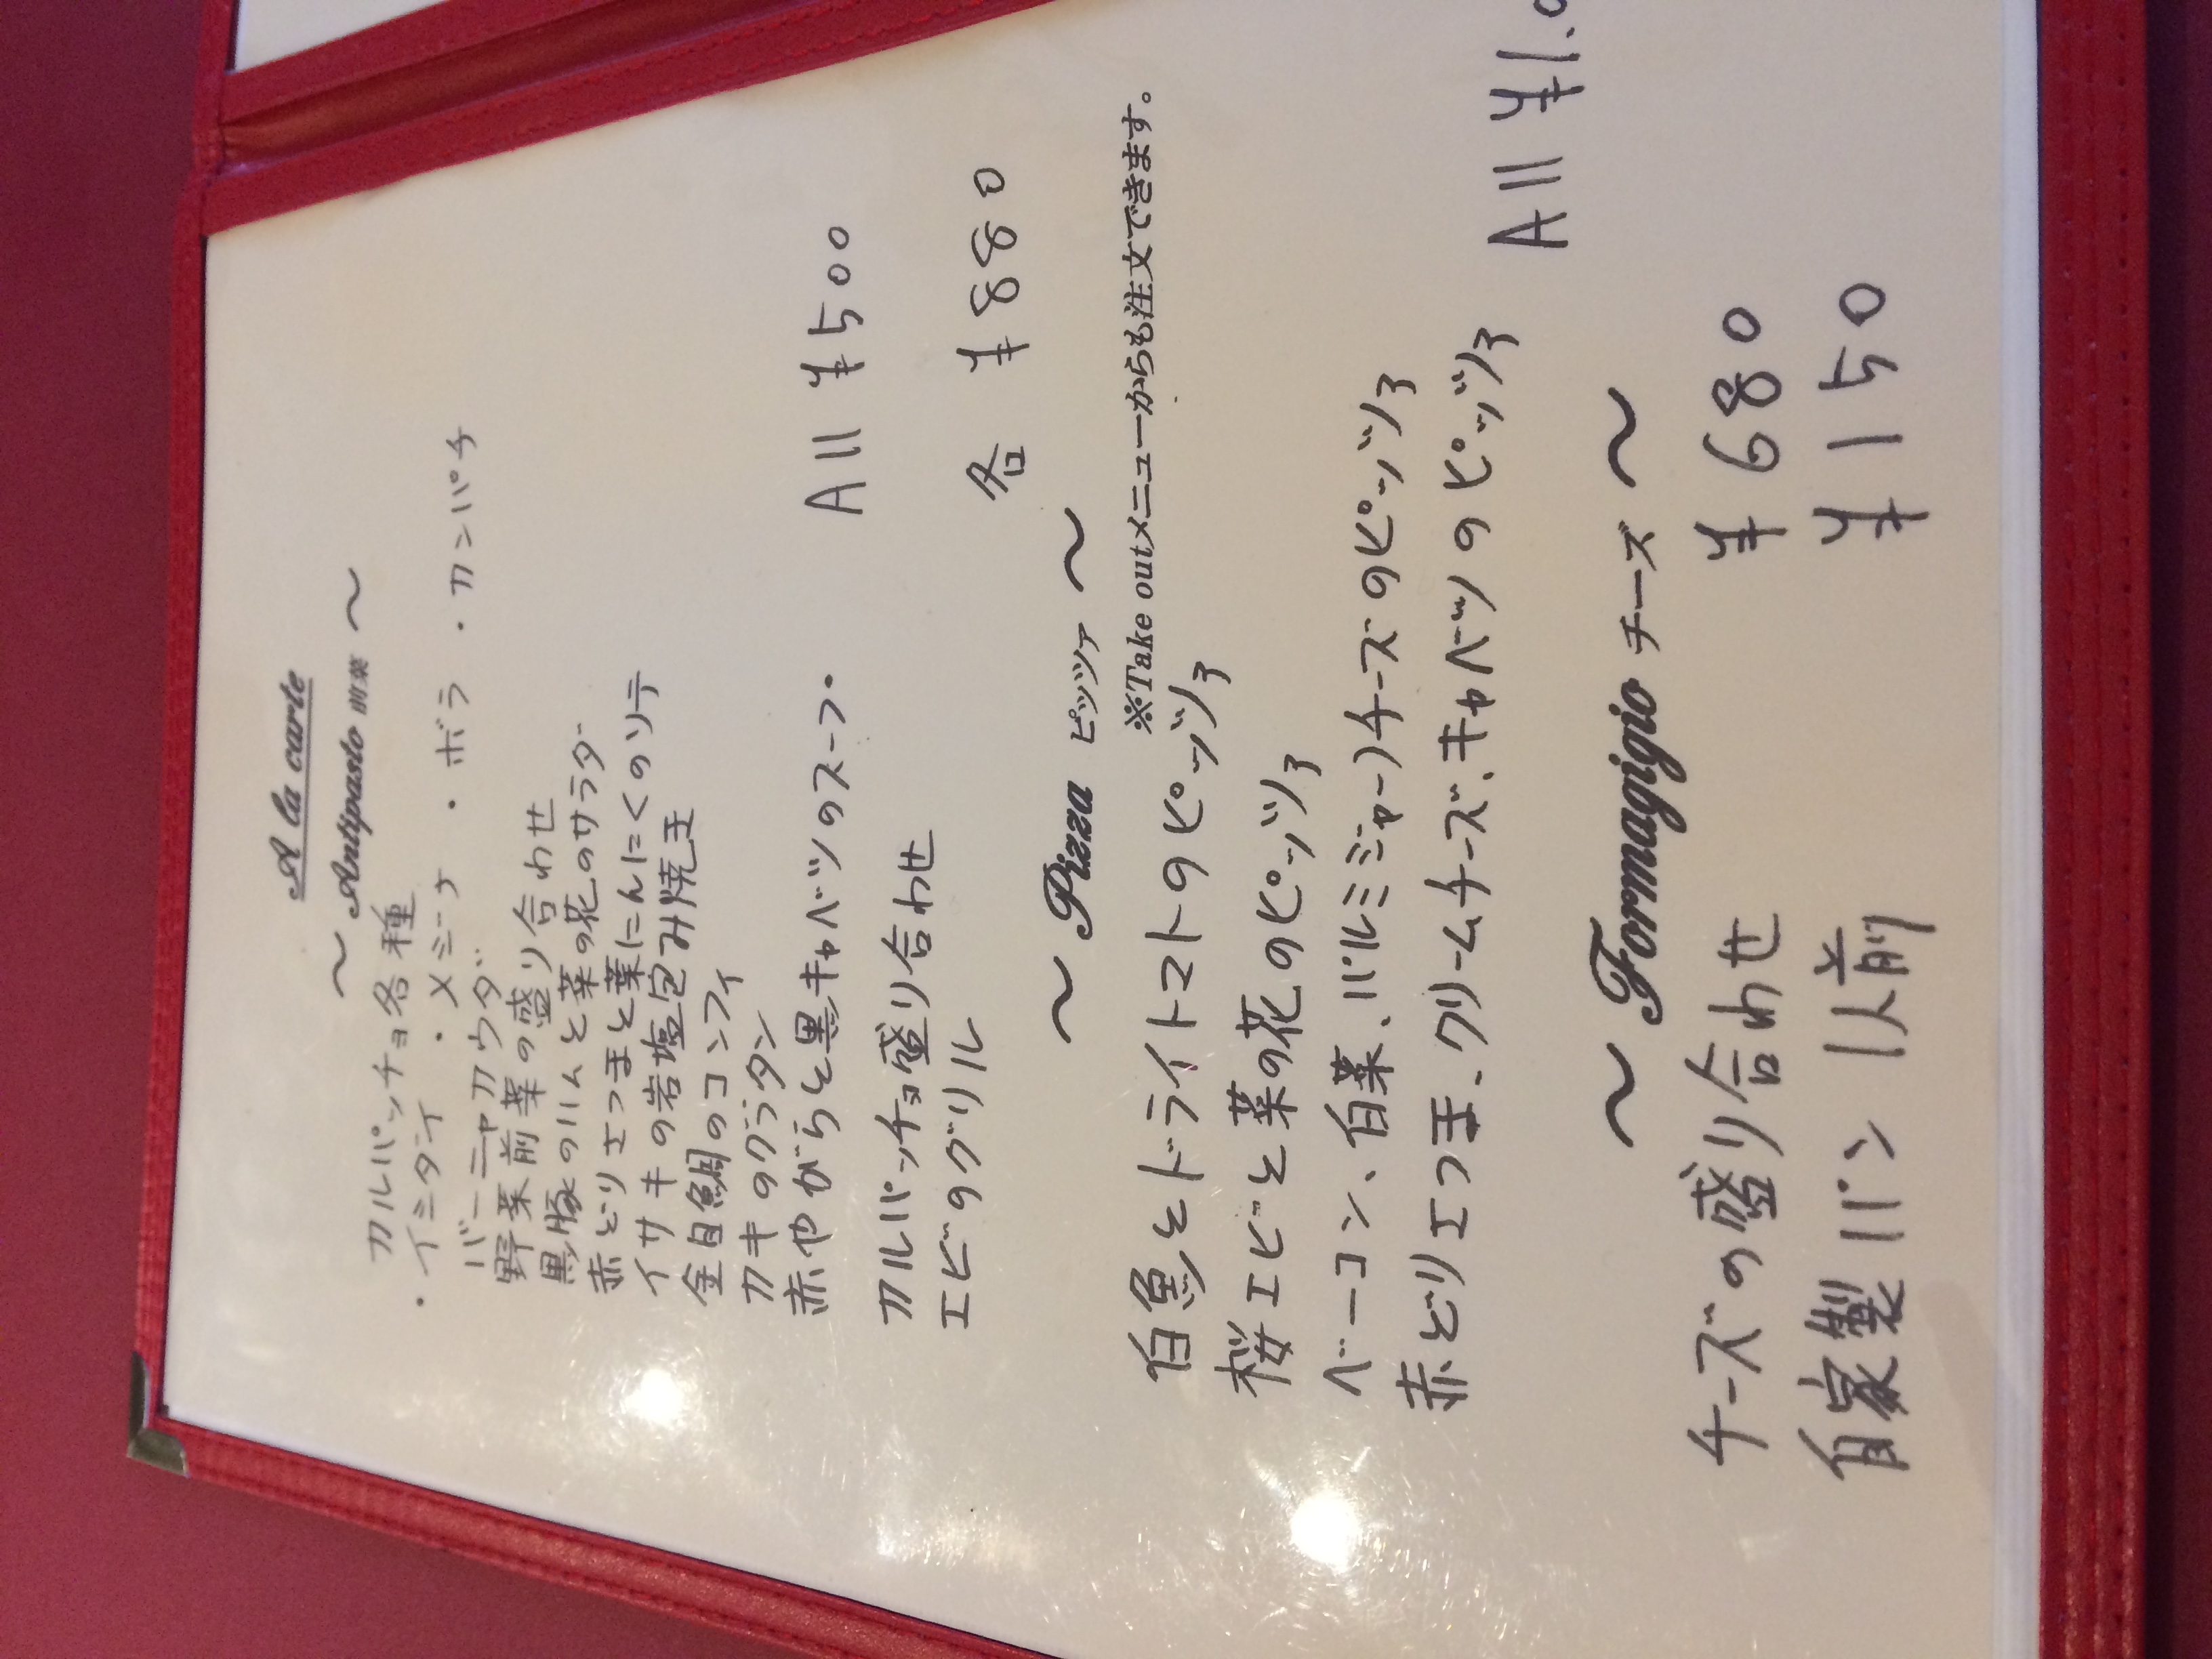 A la carte
～ Antipasto 前菜 ～
カルパッチョ各種
・イシダイ ・メジナ ・ボラ ・カンパチ
バーニャカウダ
野菜前菜の盛り合わせ
黒豚のハムと菜の花のサラダ
赤どりさつまと葉にんにくのソテ
イサキの岩塩包み焼き
金目鯛のコンフィ
カキのグラタン
赤やがらと黒キャベツのスープ
All ¥500
カルパッチョ盛り合わせ
エビのグリル
各 ¥880
～ Pizza ピッツァ ～
※Take outメニューからも注文できます。
白魚とドライトマトのピッツァ
桜エビと菜の花のピッツァ
ベーコン、白菜、パルミジャーノチーズのピッツァ
赤どりさつま、クリームチーズ、キャベツのピッツァ
All ¥1.0
～ Formaggio チーズ ～
チーズの盛り合わせ ¥680
自家製パン 1人前 ¥150